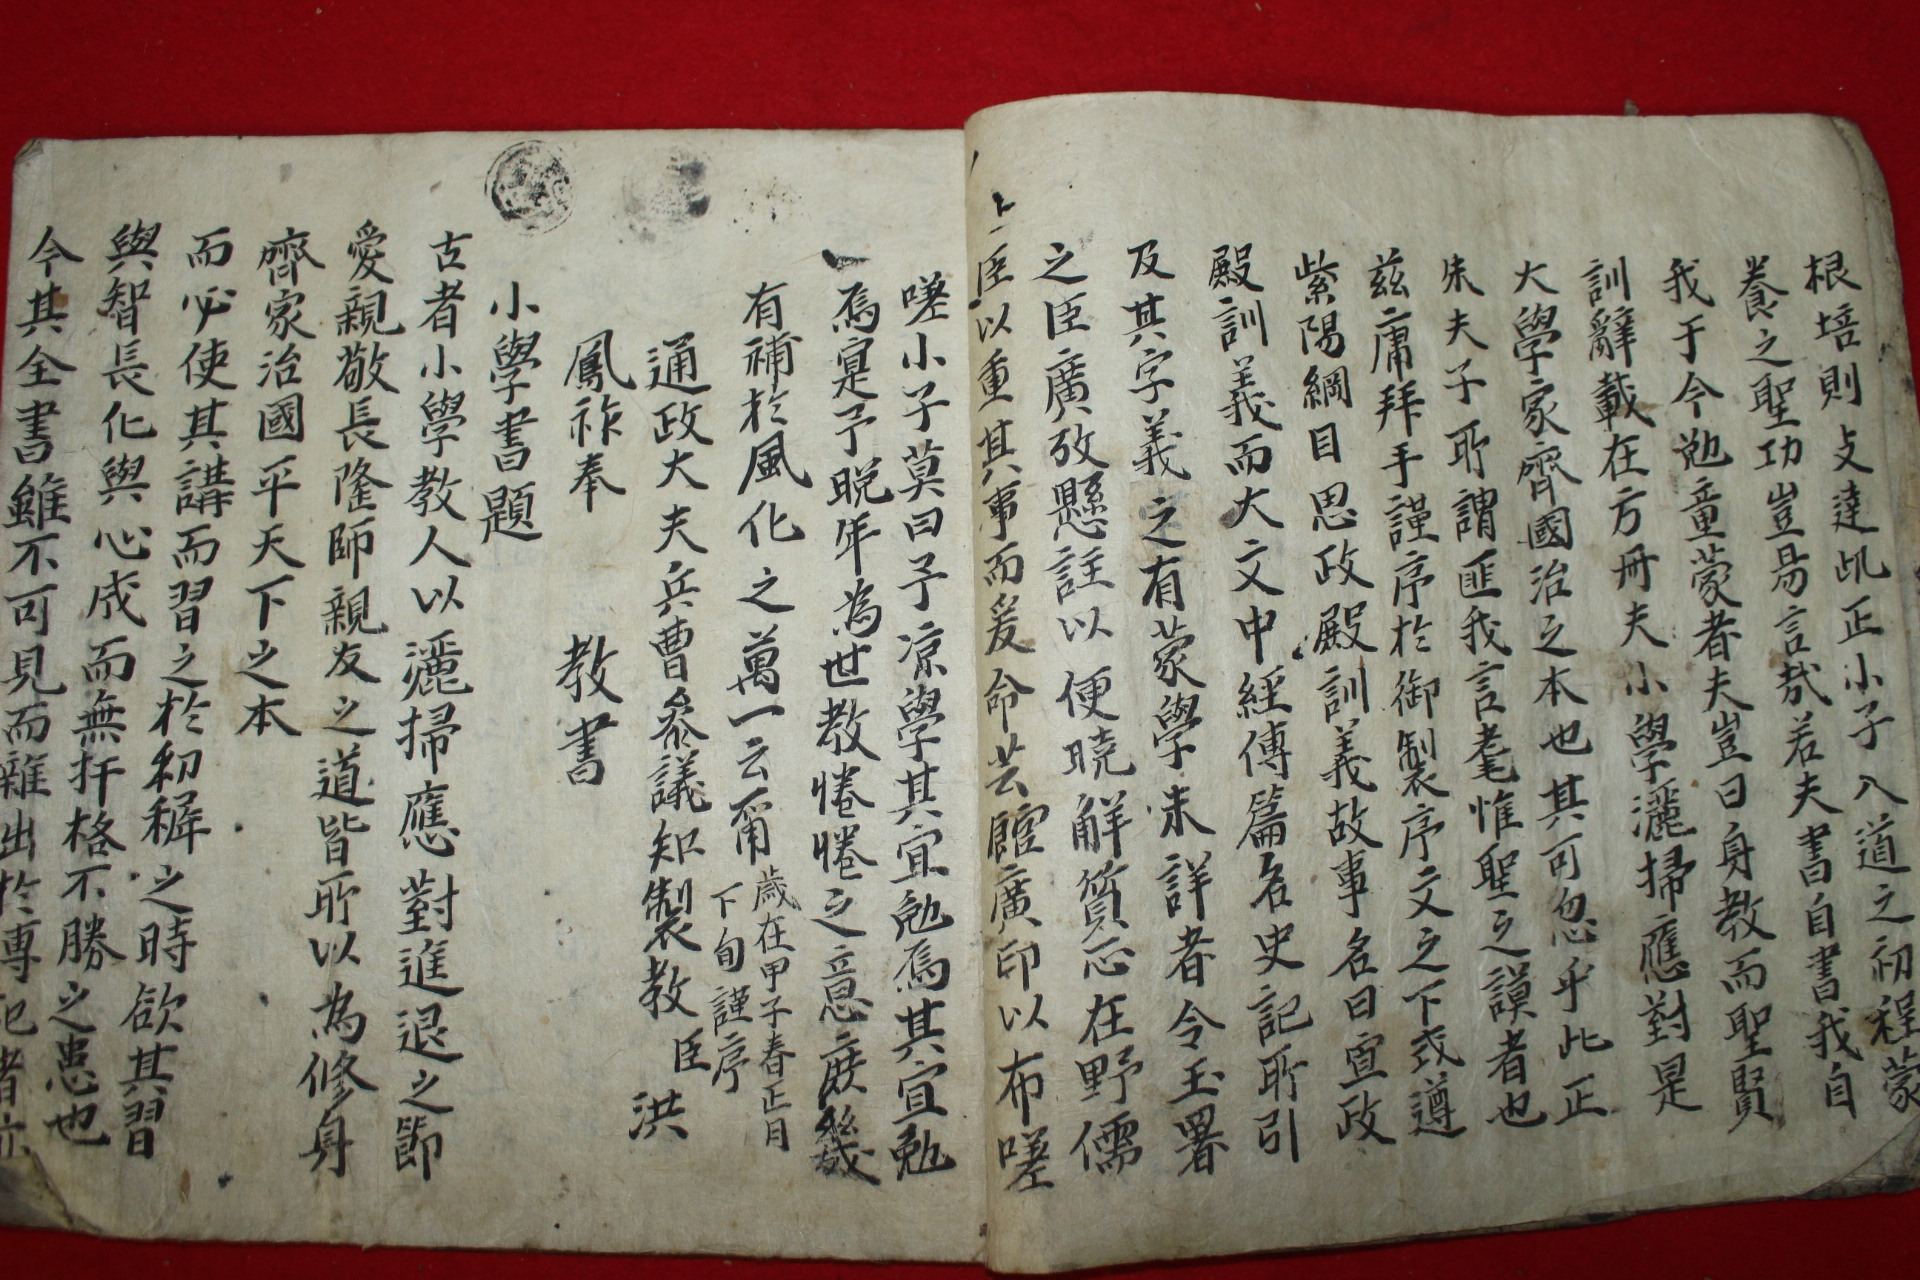 根培則支達此正小子入道之初程蒙
養之聖功豈易言哉若夫書自書我自
我于今勉童蒙者夫豈曰身教而聖賢
訓辭載在方冊夫小學灑掃應對是
大學家齊國治之本也其可忽乎此正
朱夫子所謂匪我言耄惟聖之謨者也
玆庸拜手謹序於御製序文之下或遵
紫陽綱目思政殿訓義故事名曰宣政
殿訓義而大文中經傳篇名史記所引
及其字義之有蒙學未詳者令玉署
之臣廣攷懸註以便曉解質正在野儒
臣以重其事而爰命芸館廣印以布嗟
嗟小子莫曰予涼學其宜勉焉其宜勉
焉寔予晩年為世教惓惓之意庶幾
有補於風化之萬一云爾歲在甲子春正月
下旬謹序
通政大夫兵曹參議知製教臣洪
鳳祚奉 教書
小學書題
古者小學教人以灑掃應對進退之節
愛親敬長隆師親友之道皆所以為修身
齊家治國平天下之本
而必使其講而習之於初穉之時欲其習
與智長化與心成而無扞格不勝之患也
今其全書雖不可見而雜出於傳記者亦